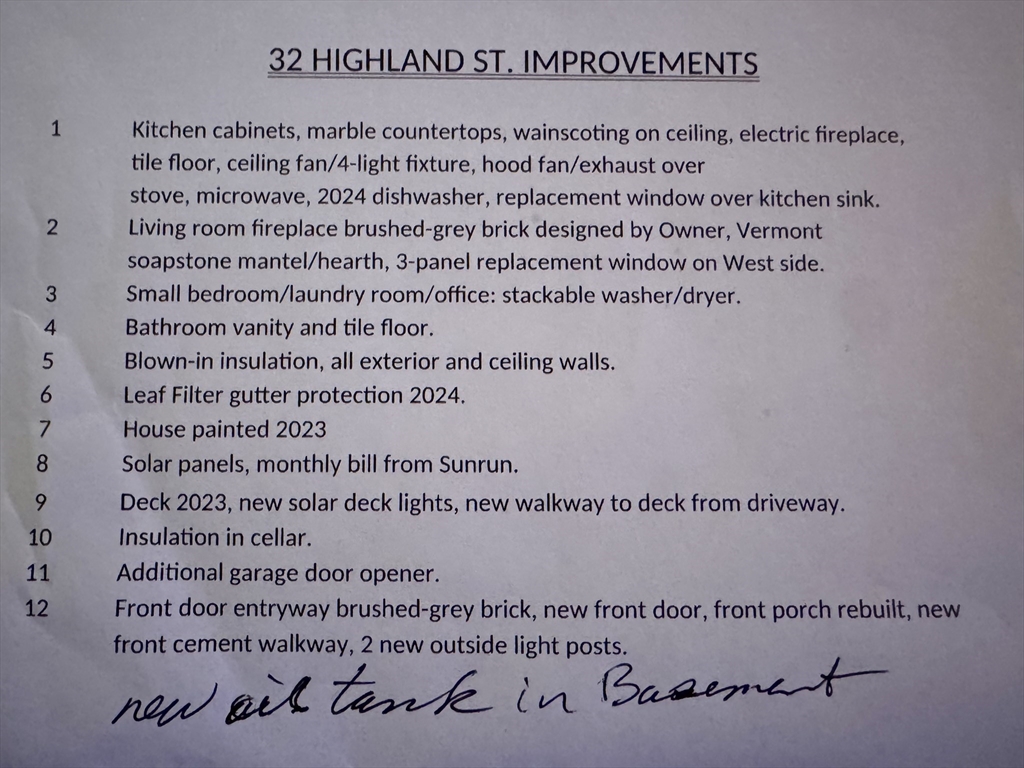 32 HIGHLAND ST. IMPROVEMENTS
1 Kitchen cabinets, marble countertops, wainscoting on ceiling, electric fireplace,
tile floor, ceiling fan/4-light fixture, hood fan/exhaust over
stove, microwave, 2024 dishwasher, replacement window over kitchen sink.
2 Living room fireplace brushed-grey brick designed by Owner, Vermont
soapstone mantel/hearth, 3-panel replacement window on West side.
3 Small bedroom/laundry room/office: stackable washer/dryer.
4 Bathroom vanity and tile floor.
5 Blown-in insulation, all exterior and ceiling walls.
6 Leaf Filter gutter protection 2024.
7 House painted 2023
8 Solar panels, monthly bill from Sunrun.
9 Deck 2023, new solar deck lights, new walkway to deck from driveway.
10 Insulation in cellar.
11 Additional garage door opener.
12 Front door entryway brushed-grey brick, new front door, front porch rebuilt, new
front cement walkway, 2 new outside light posts.
new oil tank in Basement